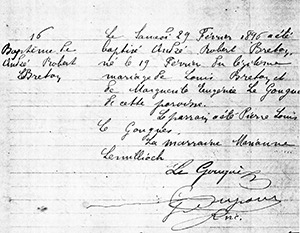 16
Baptême de
André Robert
Breton
Le Samedi 29 Février 1896 a été
baptisé André Robert Breton,
né le 19 Février du légitime
mariage de Louis Breton et
de Marguerite Eugénie Le Gouguès
de cette paroisse.
Le parrain a été Pierre Louis
Le Gouguès.
La marraine Marianne
Lemilliech
Le Gouguès